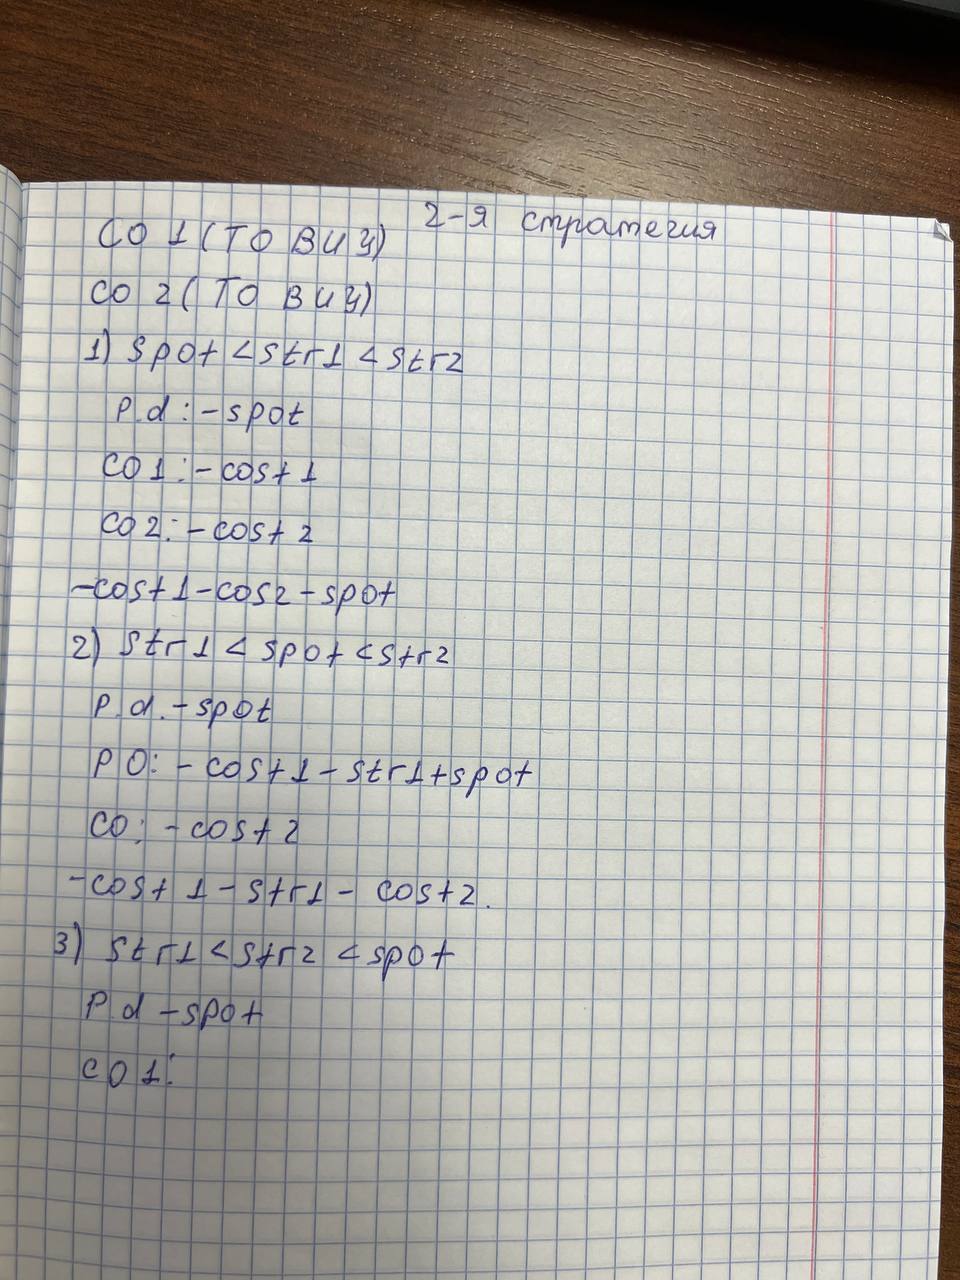 2-я стратегия
СО 1 (ТО ВИЦ)
СО 2 (ТО ВИЦ)
1) spot < str1 < str2
P.d: - spot
CO1: - cost 1
CO2: - cost 2
- cost 1 - cos2 - spot
2) str1 < spot < str2
P.d. - spot
PO: - cost 1 - str1 + spot
CO: - cost 2
- cost 1 - str1 - cost 2.
3) str1 < str2 < spot
P.d - spot
CO1: